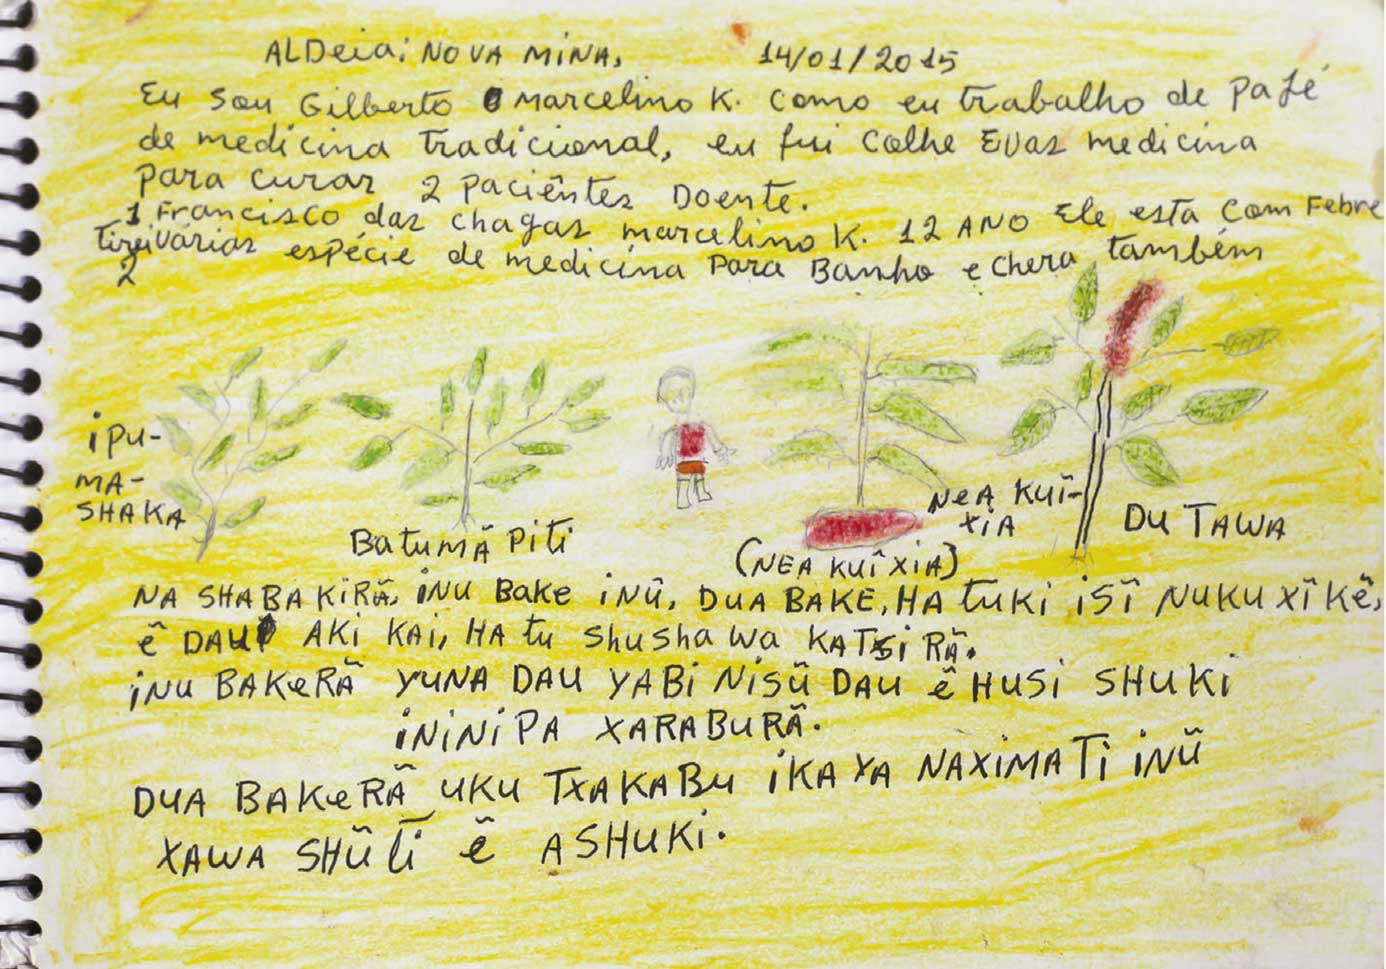 ALDeia: NOVA MINA, 14/01/2015
Eu sou Gilberto Marcelino K. como eu trabalho de pajé
de medicina tradicional, eu fui colhe Evas medicina
para curar 2 paciêntes Doente.
1 Francisco das chagas marcelino K. 12 ANO Ele esta com Febre
tirei várias espécie de medicina para Banho e chera também
2
iPU-
MA-
SHAKA
Batumã Piti
(NEA KUÎ XIA)
NeA KUÎ-
XIA
DU TAWA
NA SHABAKIRÃ, iNU Bake iNŨ, DUA BAKE, HA tuKi iSĨ NUKU XĨ KẼ,
Ẽ DAU AKi KAi, HA tu SHUSHA WA KATSi RÃ.
iNU BAKeRÃ YUNA DAU YABi NiSŨ DAU Ẽ HUSi SHUKi
iNiNiPA XARABURÃ.
DUA BAKeRÃ UKU TXAKABU iKA YA NAXiMATi iNŨ
XAWA SHŨTi Ẽ ASHUKi.